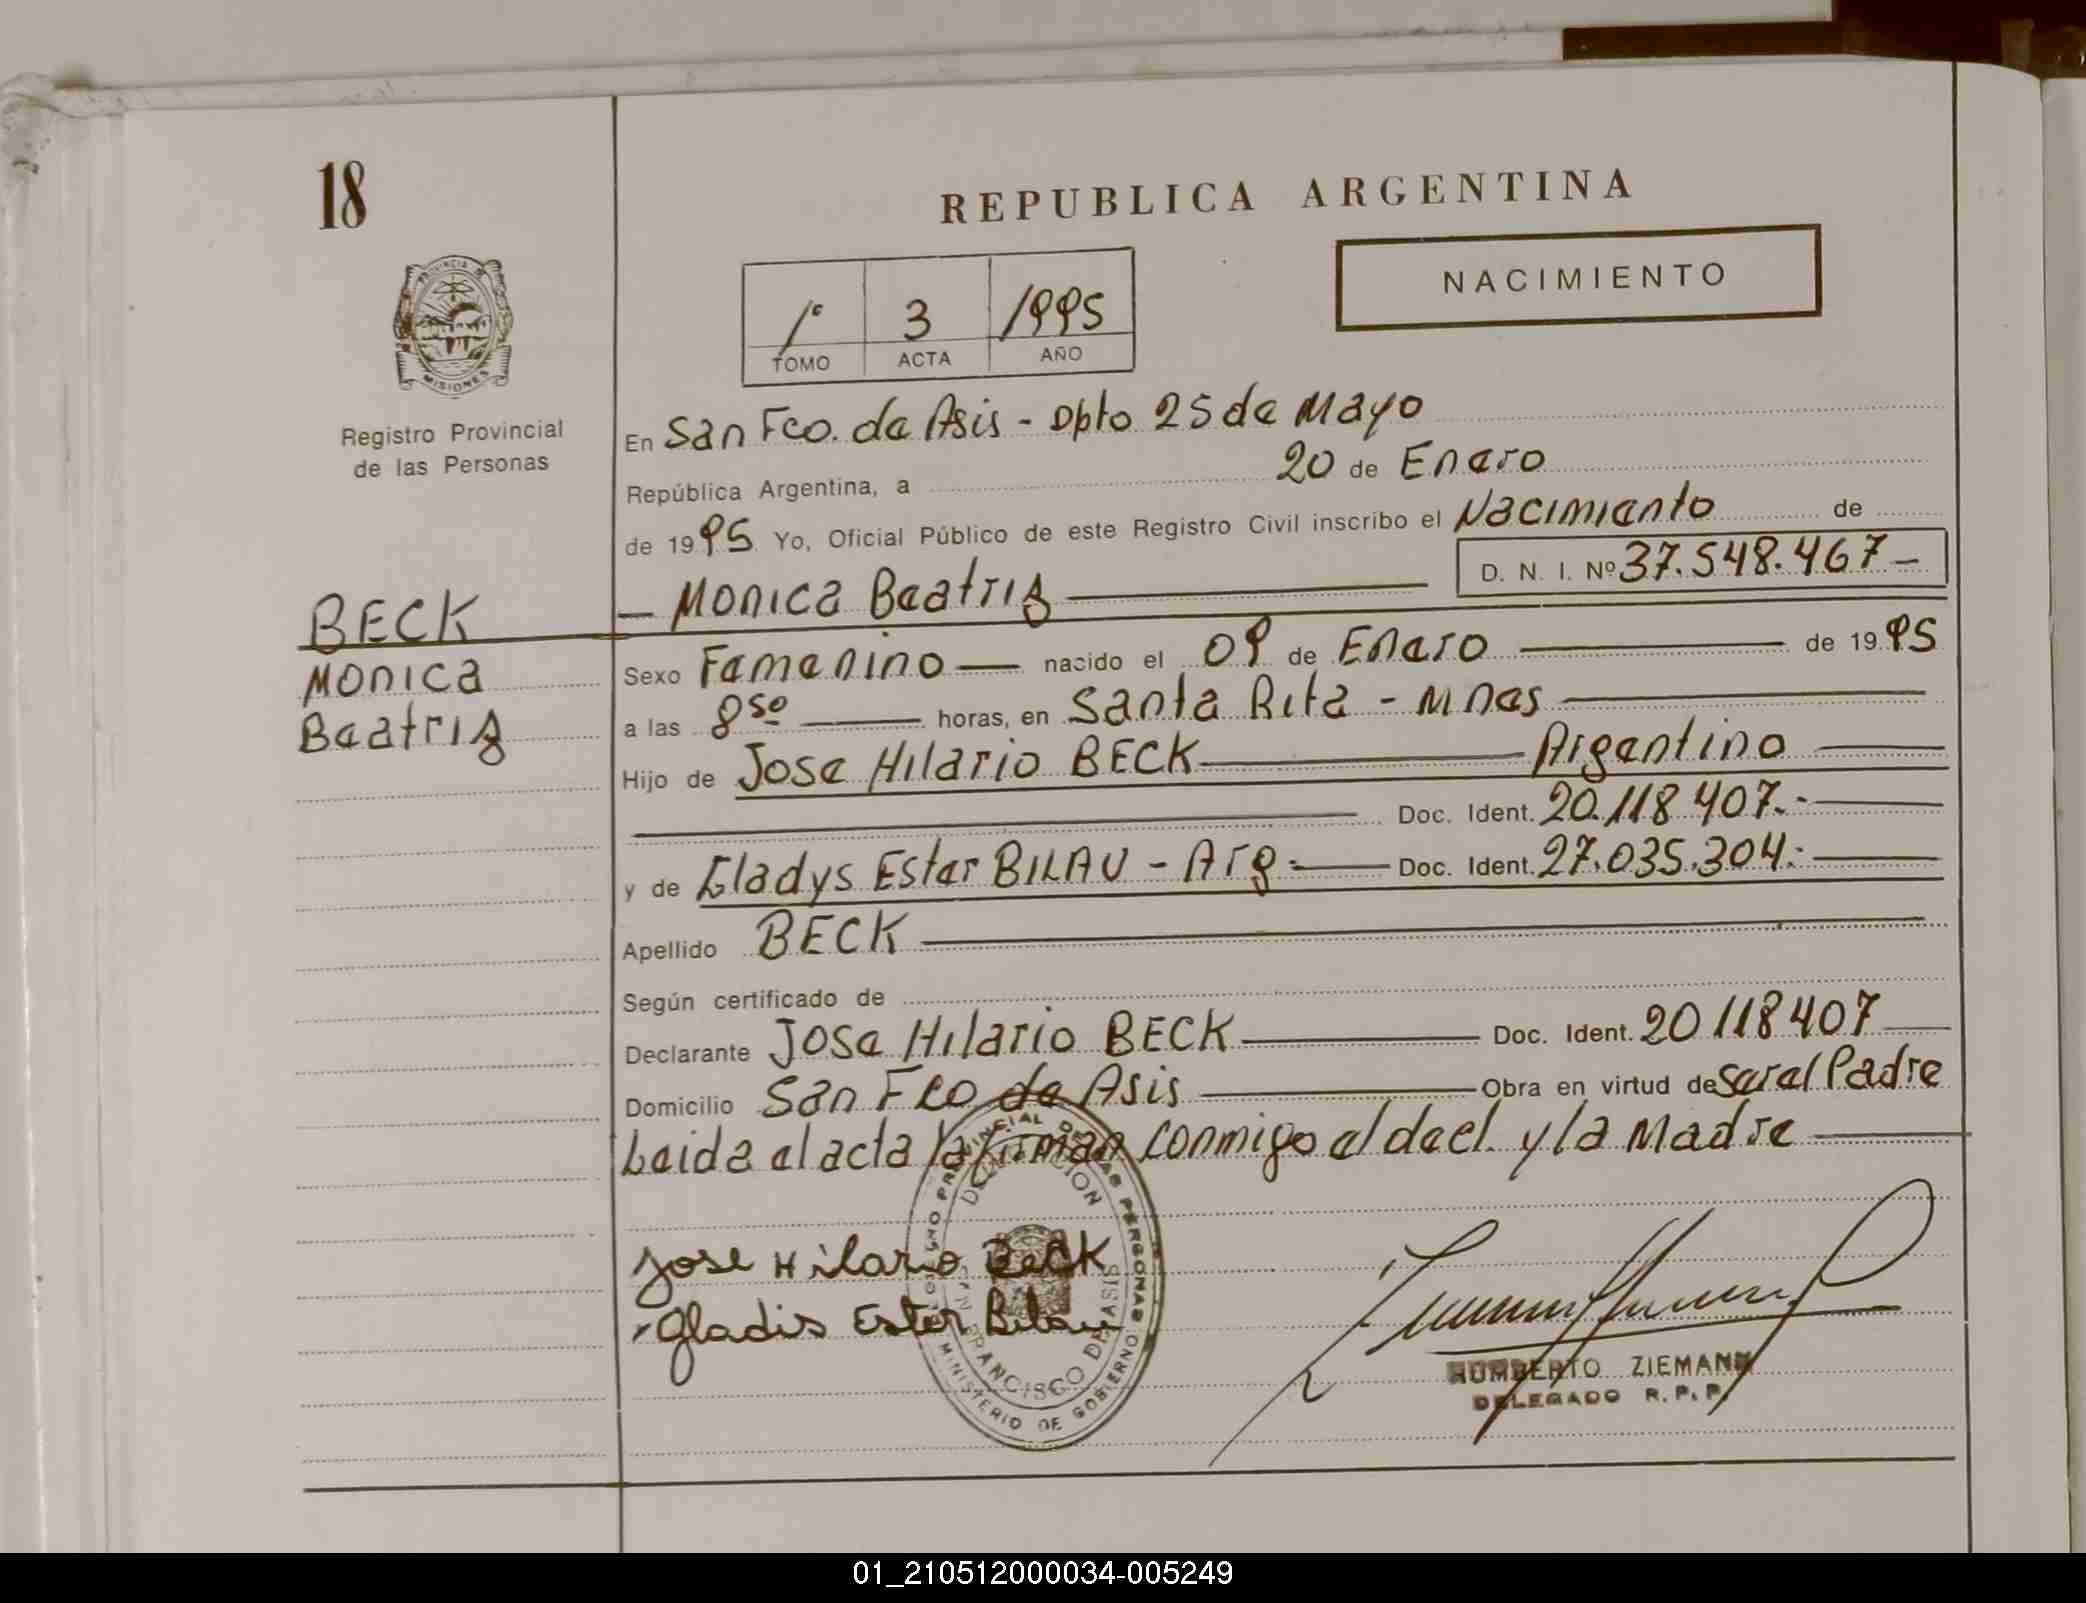 18
REPUBLICA ARGENTINA
NACIMIENTO
1° 3 1995
TOMO ACTA AÑO
PROVINCIA DE
MISIONES
Registro Provincial
de las Personas
En San Fco. de Asis - Dpto 25 de Mayo
República Argentina, a 20 de Enero
de 1995 Yo, Oficial Público de este Registro Civil inscribo el Nacimiento de
D. N. I. Nº 37.548.467-
- Monica Beatriz
BECK
Monica
Beatriz
Sexo Femenino nacido el 09 de Enero de 1995
a las 8 50 horas, en Santa Rita - Mnes
Hijo de Jose Hilario BECK Argentino
Doc. Ident. 20.118.407.-
y de Gladys Ester BILAU - Arg.- Doc. Ident. 27.035.304.-
Apellido BECK
Según certificado de
Declarante Jose Hilario BECK Doc. Ident. 20118407
Domicilio San Fco de Asis Obra en virtud de ser el Padre
Leida el acta la firman conmigo el decl. y la Madre
Jose Hilario Beck
Gladis Ester Bilau
REGISTRO PROVINCIAL DE LAS PERSONAS
DELEGACION
SAN FRANCISCO DE ASIS
MINISTERIO DE GOBIERNO
HUMBERTO ZIEMANN
DELEGADO R.P.P.
01_210512000034-005249